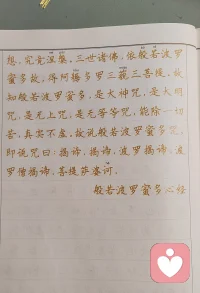 想，究竟涅槃，三世诸佛，依般若波罗
蜜多故，得阿耨多罗三藐三菩提，故
知般若波罗蜜多，是大神咒，是大明
咒，是无上咒，是无等等咒，能除一切
苦，真实不虚，故说般若波罗蜜多咒，
即说咒曰：揭谛，揭谛，波罗揭谛，波
罗僧揭谛，菩提萨婆诃。
般若波罗蜜多心经